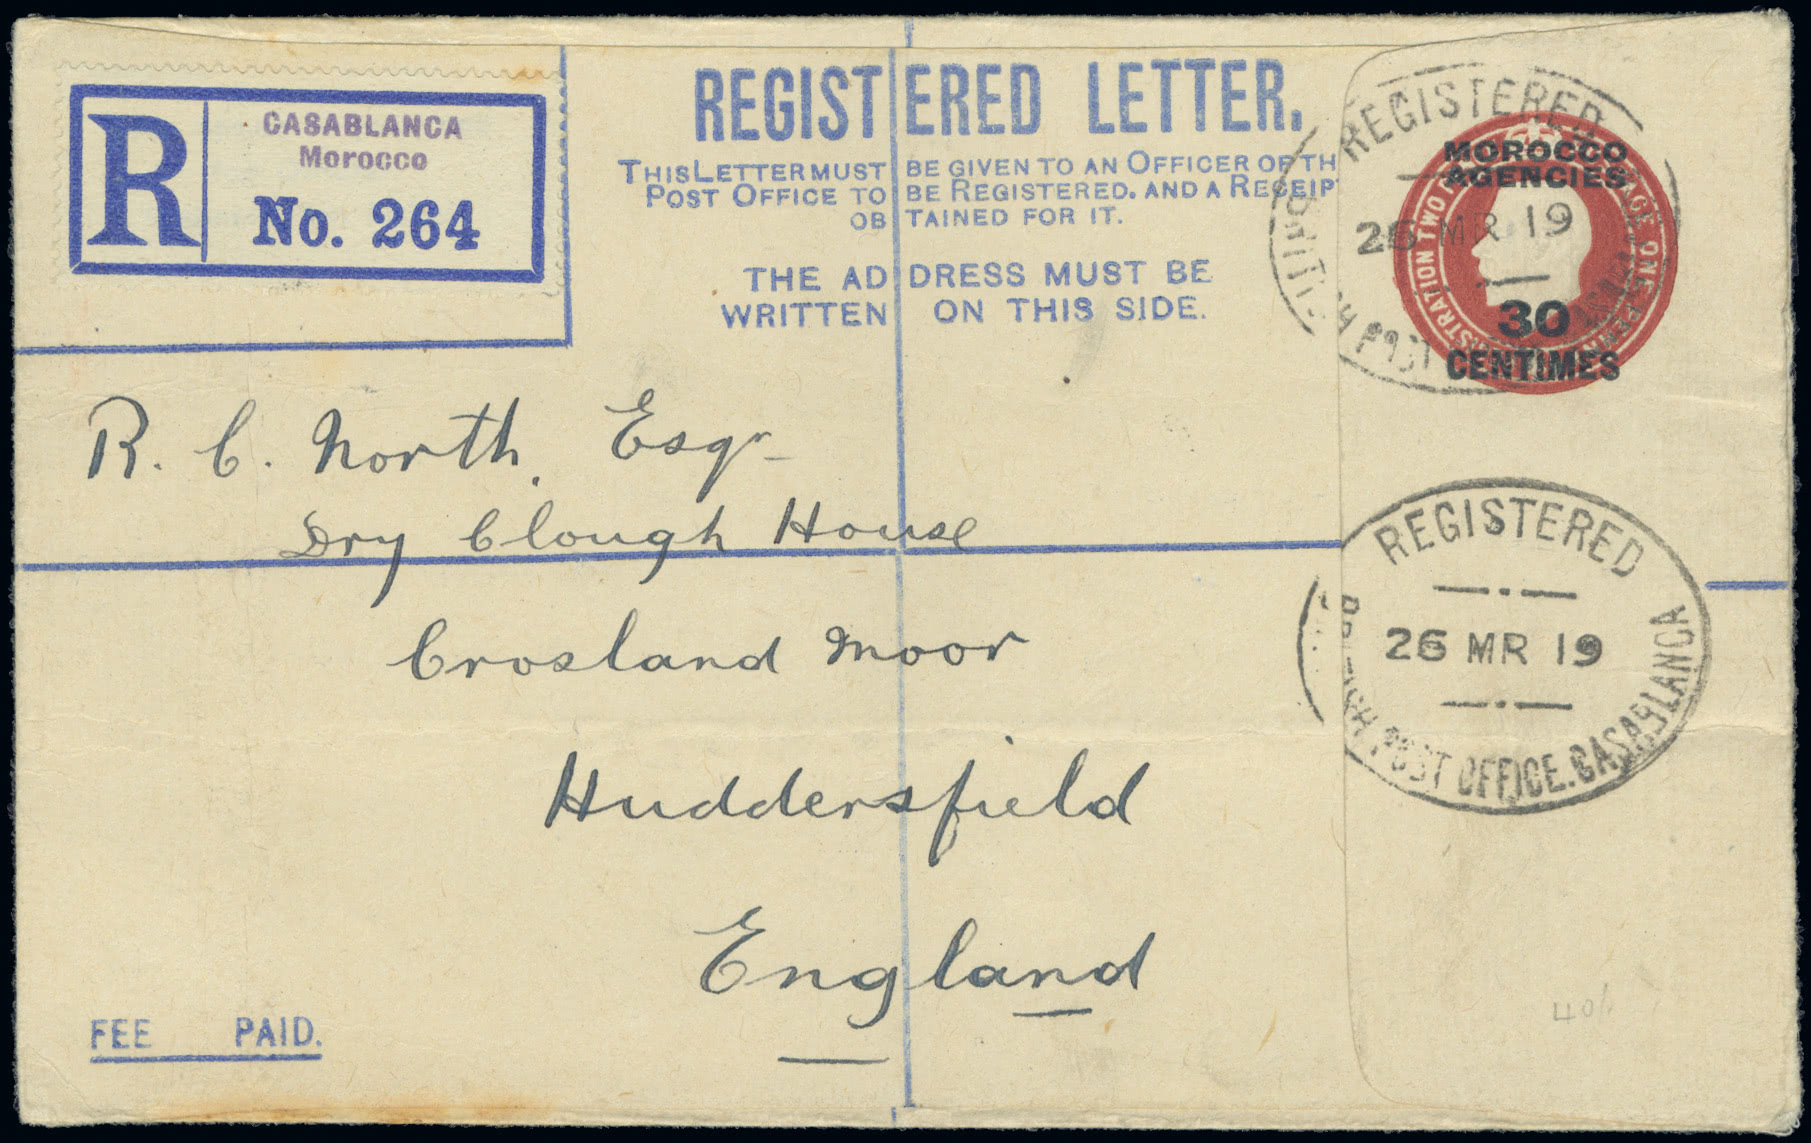 CASABLANCA
Morocco
R No. 264
REGISTERED LETTER.
THIS LETTER MUST BE GIVEN TO AN OFFICER OF TH
POST OFFICE TO BE REGISTERED. AND A RECEIP
OBTAINED FOR IT.
THE ADDRESS MUST BE
WRITTEN ON THIS SIDE.
MOROCCO
AGENCIES
30
CENTIMES
REGISTERED
26 MR 19
R. C. North. Esqr
Dry Clough House
Crosland Moor
Huddersfield
England
REGISTERED
26 MR 19
POST OFFICE. CASABLANCA
FEE PAID.